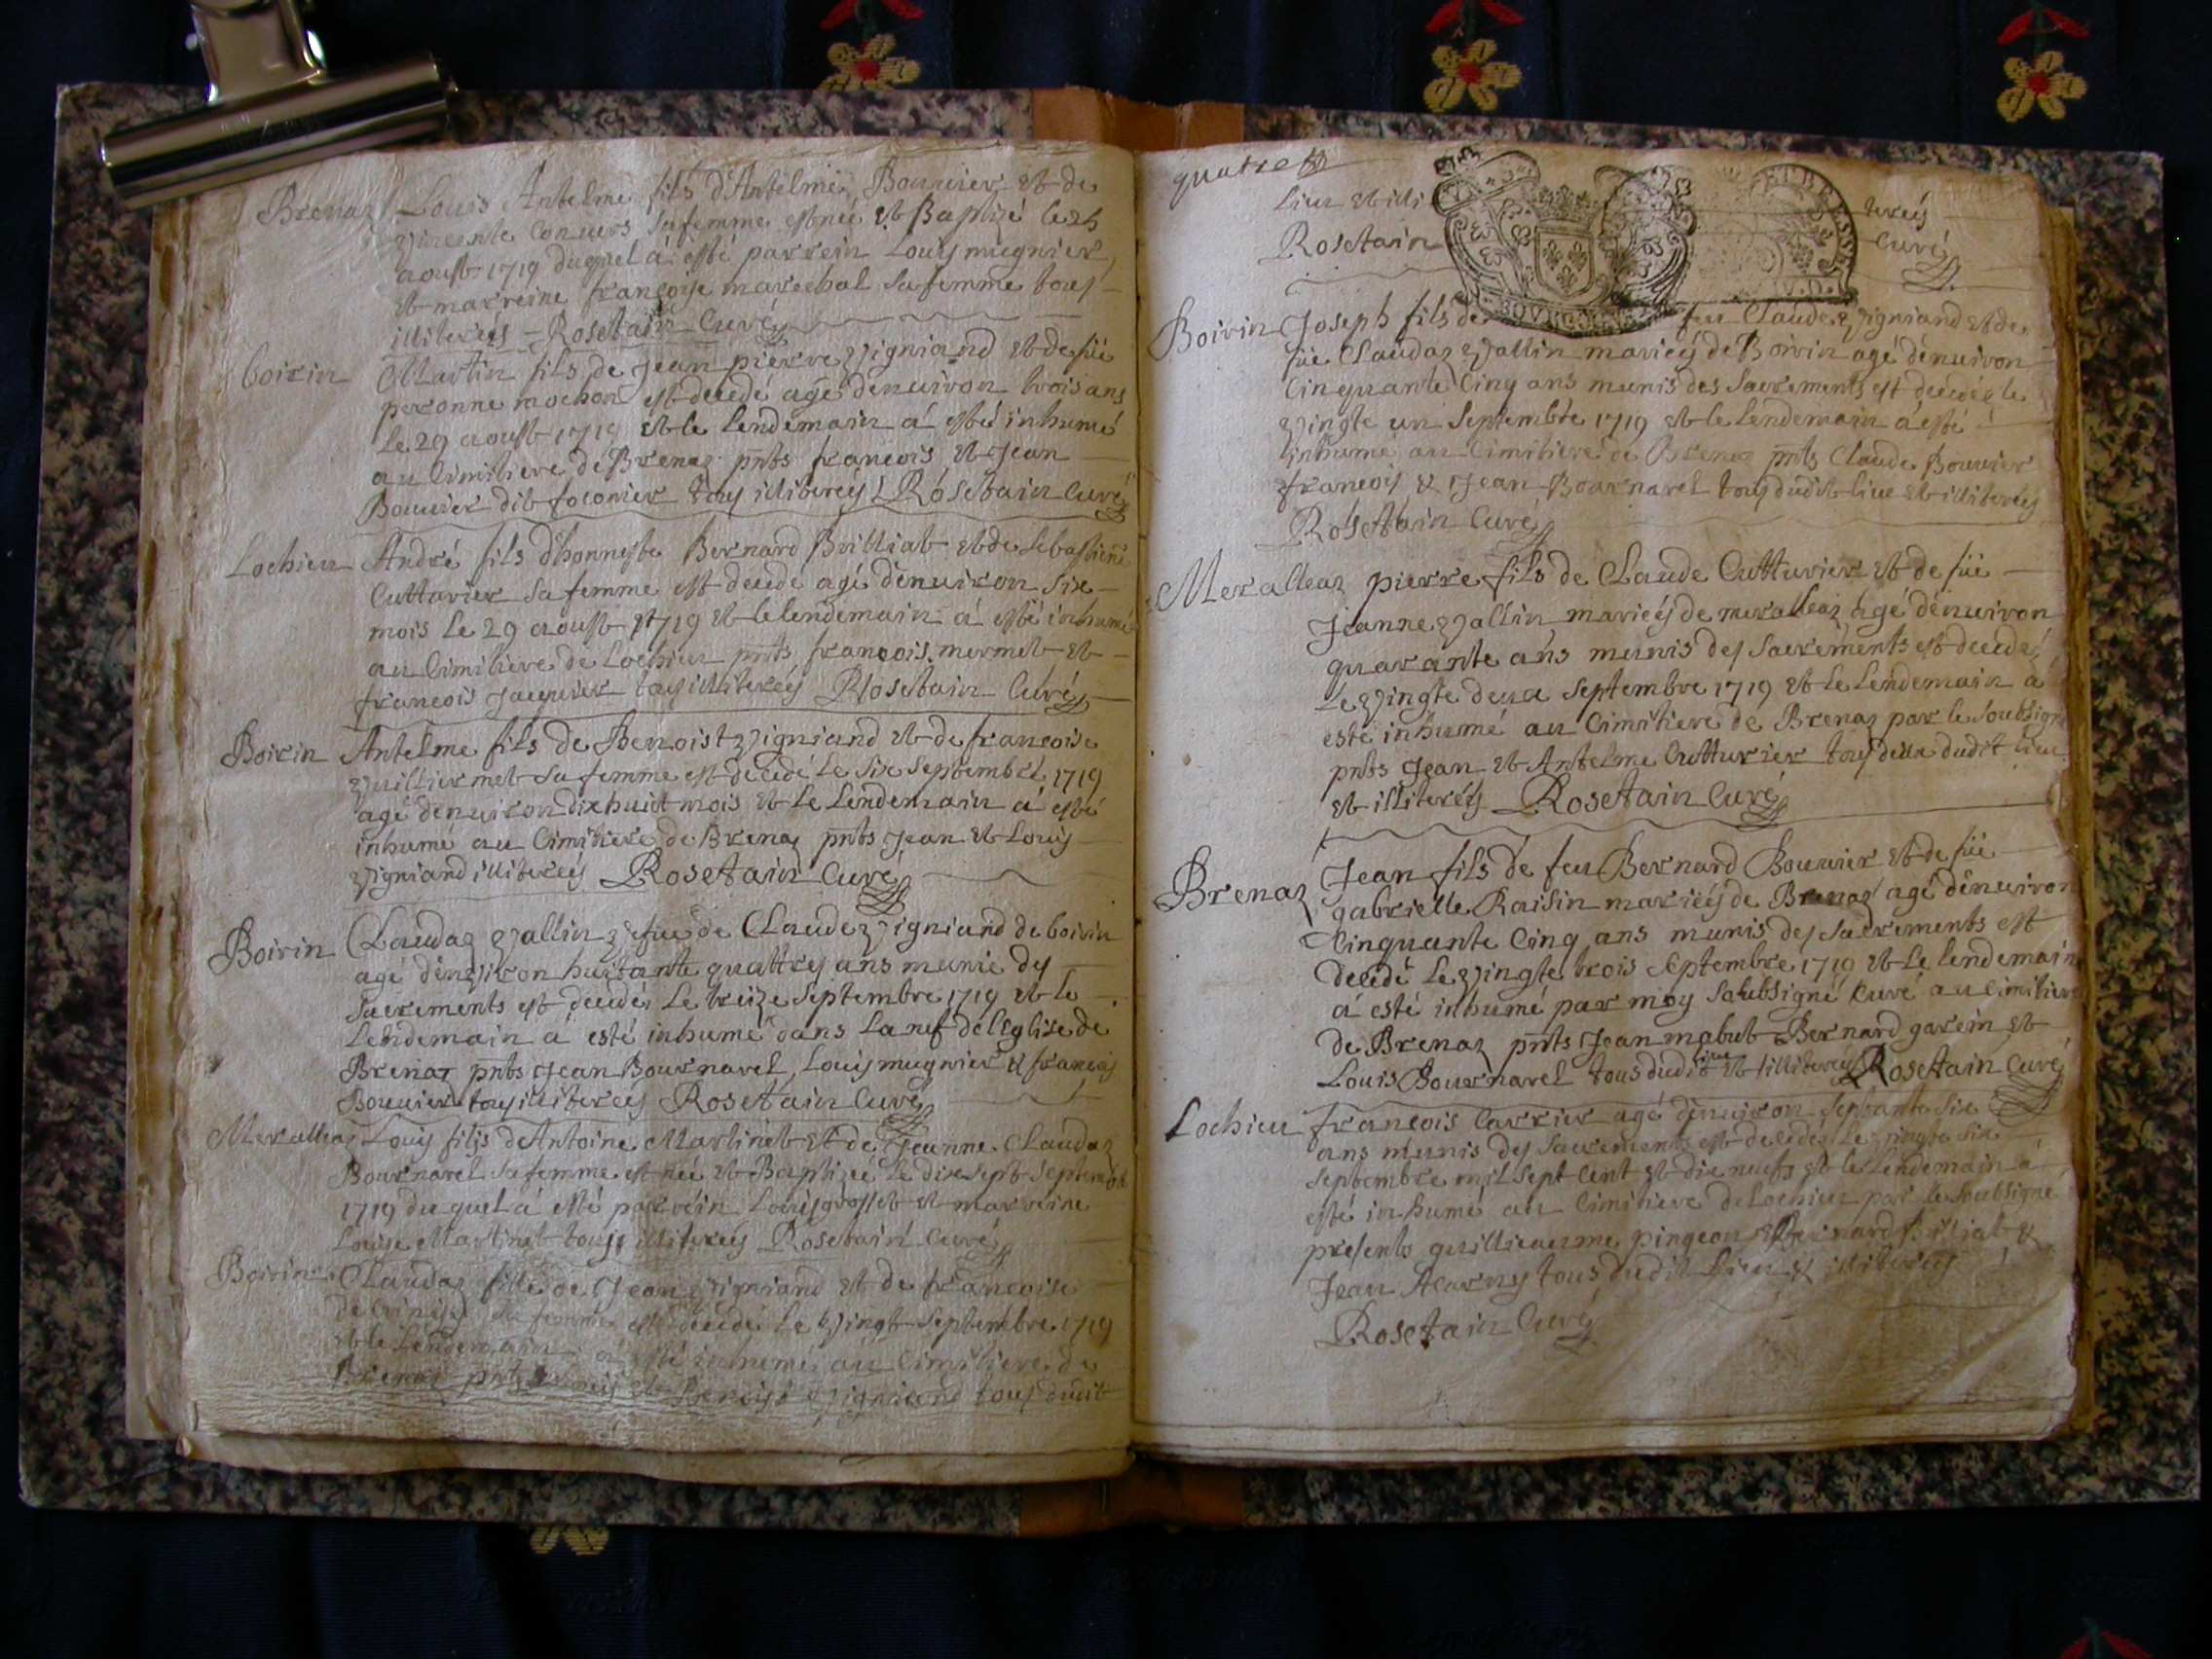 Brenaz Louis Antelme fils d'Antelme Bouuier et de
vincente Conuers sa femme est né et Baptizé le 25
aoust 1719 duquel á esté parrein Louis mugnier
et marreine françoise marechal sa femme tous
illiterés Rosetain Curé
boirin Martin fils de Jean pierre vigniand et de füe
peronne mochon est decedé agé denuiron trois ans
Le 29 aoust 1719 et le lendemain á esté inhumé
au Cimitiere de Brenaz pnts francois et Jean
Bouuier dit foconier tous illiterés Rosetain Curé
Lochieu André fils d'honneste Bernard Brilliat et de sebastiene
Cutturier sa femme est decedé agé denuiron six
mois Le 29 aoust 1719 et le lendemain á esté inhumé
au Cimitiere de Lochieu pnts francois mermet et
francois Jaquier tous illiterés Rosetain Curé
Boirin Antelme fils de Benoist vigniand et de francoise
vuilliermet sa femme est decedé Le six Septembre 1719
agé denuiron dix huict mois et Le Lendemain á esté
inhumé au Cimitiere de Brenaz pnts Jean et Louis
vigniand illiterés Rosetain Curé
Boirin Claudaz vallin vefue de Claude vigniand de boirin
agé denviron huictante quattre ans munie des
sacrements est decedé Le treize Septembre 1719 et le
Lendemain á esté inhumé dans La nef de l'Eglise de
Brenaz pnts Jean Bournarel, Louis mugnier & francois
Bouuier tous illiterés Rosetain Curé
Meralleaz Louis filis d'Antoine Martinet et de Jeanne Claudaz
Bournarel sa femme est née et Baptizée Le dix sept Septembre
1719 du quel á esté parrein Louis grosset et marreine
Louise Martinet tous illiterés Rosetain Curé
Boirin Claudaz fille de Jean vigniand et de francoise
sa femme est decedé Le vingt Septembre 1719
et le Lendemain á esté inhumé au Cimitiere de
Brenaz pnts et vigniand tous dudit
quatre
Lieu et illi terés
Rosetain Curé
Boirin Joseph fils de feu Claude vigniand et de
füe Claudaz vallin mariés de Boirin agé denuiron
Cinquante Cinq ans munis des Sacrements est decedé le
vingte un Septembre 1719 et le Lendemain á esté
inhumé au Cimitiere de Brenaz pnts Claude Bouuier
francois & Jean Bournarel tous dudit Lieu et illiterés
Rosetain Curé
Meralleaz pierre fils de Claude Cutturier et de füe
Jeanne vallin mariés de meralleaz agé denuiron
quarante ans munis des sacrements est decedé
Le vingte deux Septembre 1719 et Le Lendemain á
esté inhumé au Cimitiere de Brenaz par le Soubsigné
pnts Jean et Antelme Cutturier tous deux dudit Lieu
et illiterés Rosetain Curé
Brenaz Jean fils de feu Bernard Bouuier et de füe
gabrielle Raisin mariés de Brenaz agé denuiron
Cinquante Cinq ans munis des sacrements est
decedé Le vingte trois Septembre 1719 et Le lendemain
á esté inhumé par moy Soubsigné Curé au Cimitiere
de Brenaz pnts Jean mabut Bernard garein et
Louis Bournarel tous dudit Lieu et illiterés Rosetain Curé
Lochieu francois Carrier agé denuiron Septante Six
ans munis des sacrements est decedé Le vingte Six
Septembre mil Sept Cent et dix neuf et le Lendemain á
esté inhumé au Cimitiere de Lochieu par le Soubsigné
presents guillieaume pingeon Bernard Billiat &
Jean tous dudit Lieu & illiterés
Rosetain Curé